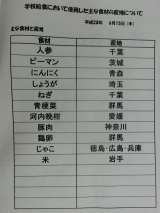 学校給食において使用した主な食材の産地について
平成28年 6月15日（水）
主な食材と産地
食材 産地
人参 千葉
ピーマン 茨城
にんにく 青森
しょうが 埼玉
ねぎ 千葉
青梗菜 群馬
河内晩柑 愛媛
豚肉 神奈川
鶏卵 群馬
じゃこ 徳島・広島・兵庫
米 岩手